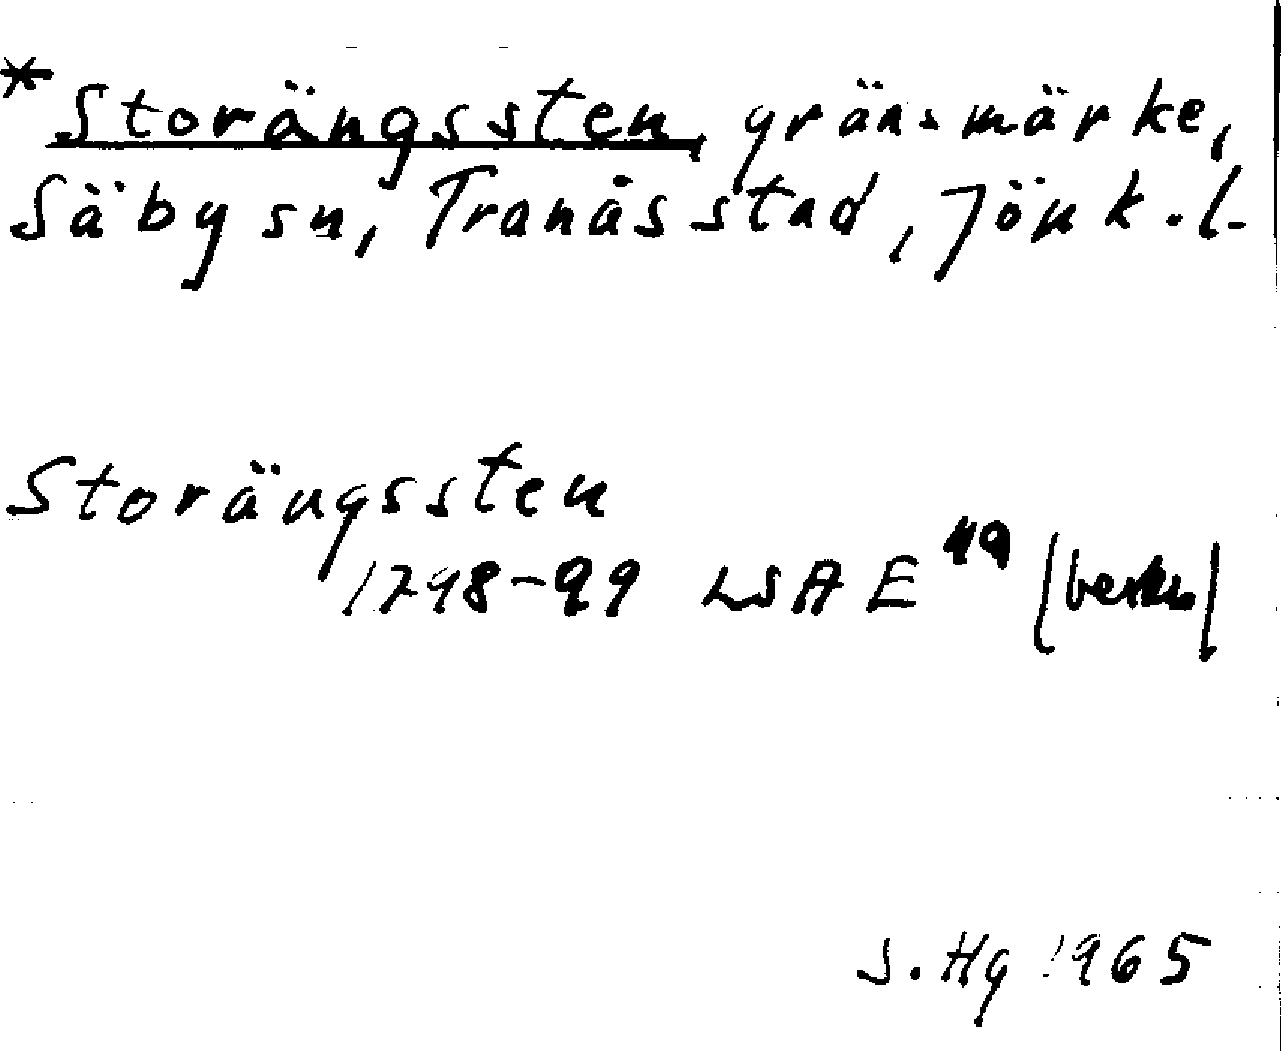 *Storängssten, gränsmärke,
Säby sn, Tranås stad, Jönk. l.
Storängssten
1798-99 LSA E49 (beskr)
S. Hg 1965